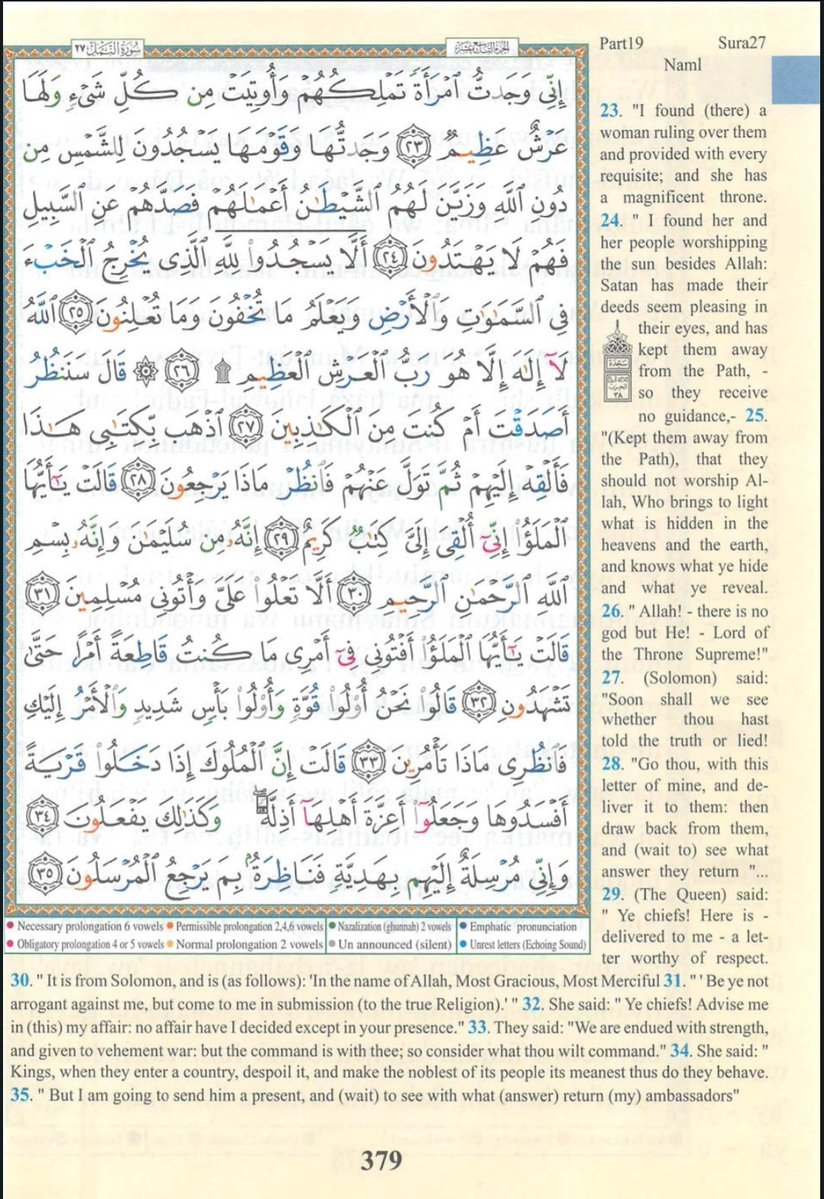 سُورَةُ النَّمْلِ ٢٧
الجُزءُ التَّاسِعُ عَشَرَ
Part19 Sura27
Naml
إِنِّي وَجَدتُّ ٱمْرَأَةً تَمْلِكُهُمْ وَأُوتِيَتْ مِن كُلِّ شَىْءٍ وَلَهَا
عَرْشٌ عَظِيمٌ ٢٣ وَجَدتُّهَا وَقَوْمَهَا يَسْجُدُونَ لِلشَّمْسِ مِن
دُونِ ٱللَّهِ وَزَيَّنَ لَهُمُ ٱلشَّيْطَـٰنُ أَعْمَـٰلَهُمْ فَصَدَّهُمْ عَنِ ٱلسَّبِيلِ
فَهُمْ لَا يَهْتَدُونَ ٢٤ أَلَّا يَسْجُدُوا۟ لِلَّهِ ٱلَّذِى يُخْرِجُ ٱلْخَبْءَ
فِى ٱلسَّمَـٰوَٰتِ وَٱلْأَرْضِ وَيَعْلَمُ مَا تُخْفُونَ وَمَا تُعْلِنُونَ ٢٥ ٱللَّهُ
لَآ إِلَـٰهَ إِلَّا هُوَ رَبُّ ٱلْعَرْشِ ٱلْعَظِيمِ ۩ ٢٦ ۞ قَالَ سَنَنظُرُ
أَصَدَقْتَ أَمْ كُنتَ مِنَ ٱلْكَـٰذِبِينَ ٢٧ ٱذْهَب بِّكِتَـٰبِى هَـٰذَا
فَأَلْقِهْ إِلَيْهِمْ ثُمَّ تَوَلَّ عَنْهُمْ فَٱنظُرْ مَاذَا يَرْجِعُونَ ٢٨ قَالَتْ يَـٰٓأَيُّهَا
ٱلْمَلَؤُا۟ إِنِّىٓ أُلْقِىَ إِلَىَّ كِتَـٰبٌ كَرِيمٌ ٢٩ إِنَّهُۥ مِن سُلَيْمَـٰنَ وَإِنَّهُۥ بِسْمِ
ٱللَّهِ ٱلرَّحْمَـٰنِ ٱلرَّحِيمِ ٣٠ أَلَّا تَعْلُوا۟ عَلَىَّ وَأْتُونِى مُسْلِمِينَ ٣١
قَالَتْ يَـٰٓأَيُّهَا ٱلْمَلَؤُا۟ أَفْتُونِى فِىٓ أَمْرِى مَا كُنتُ قَاطِعَةً أَمْرًا حَتَّىٰ
تَشْهَدُونِ ٣٢ قَالُوا۟ نَحْنُ أُو۟لُوا۟ قُوَّةٍ وَأُو۟لُوا۟ بَأْسٍ شَدِيدٍ وَٱلْأَمْرُ إِلَيْكِ
فَٱنظُرِى مَاذَا تَأْمُرِينَ ٣٣ قَالَتْ إِنَّ ٱلْمُلُوكَ إِذَا دَخَلُوا۟ قَرْيَةً
أَفْسَدُوهَا وَجَعَلُوٓا۟ أَعِزَّةَ أَهْلِهَآ أَذِلَّةً ۖ وَكَذَٰلِكَ يَفْعَلُونَ ٣٤
وَإِنِّى مُرْسِلَةٌ إِلَيْهِم بِهَدِيَّةٍ فَنَاظِرَةٌۢ بِمَ يَرْجِعُ ٱلْمُرْسَلُونَ ٣٥
Necessary prolongation 6 vowels Permissible prolongation 2,4,6 vowels Nazalization (ghunnah) 2 vowels Emphatic pronunciation
Obligatory prolongation 4 or 5 vowels Normal prolongation 2 vowels Un announced (silent) Unrest letters (Echoing Sound)
23. "I found (there) a
woman ruling over them
and provided with every
requisite; and she has
a magnificent throne.
24. " I found her and
her people worshipping
the sun besides Allah:
Satan has made their
deeds seem pleasing in
their eyes, and has
kept them away
from the Path, -
so they receive
no guidance,- 25.
"(Kept them away from
the Path), that they
should not worship Al-
lah, Who brings to light
what is hidden in the
heavens and the earth,
and knows what ye hide
and what ye reveal.
26. " Allah! - there is no
god but He! - Lord of
the Throne Supreme!"
27. (Solomon) said:
"Soon shall we see
whether thou hast
told the truth or lied!
28. "Go thou, with this
letter of mine, and de-
liver it to them: then
draw back from them,
and (wait to) see what
answer they return "...
29. (The Queen) said:
" Ye chiefs! Here is -
delivered to me - a let-
ter worthy of respect.
30. " It is from Solomon, and is (as follows): 'In the name of Allah, Most Gracious, Most Merciful 31. " ' Be ye not
arrogant against me, but come to me in submission (to the true Religion).' " 32. She said: " Ye chiefs! Advise me
in (this) my affair: no affair have I decided except in your presence." 33. They said: "We are endued with strength,
and given to vehement war: but the command is with thee; so consider what thou wilt command." 34. She said: "
Kings, when they enter a country, despoil it, and make the noblest of its people its meanest thus do they behave.
35. " But I am going to send him a present, and (wait) to see with what (answer) return (my) ambassadors"
379